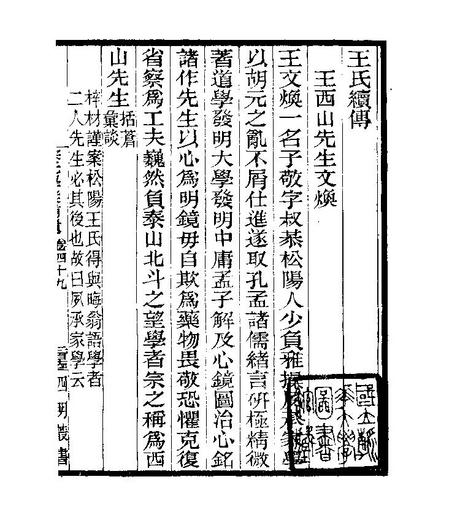 王氏續傳
王西山先生文煥
王文煥一名子敬字叔恭松陽人少負雅操夙承家學
以胡元之亂不屑仕進遂取孔孟諸儒緒言硏極精微
著道學發明大學發明中庸孟子解及心鏡圖治心銘
諸作先生以心爲明鏡毋自欺爲藥物畏敬恐懼克復
省察爲工夫巍然負泰山北斗之望學者宗之稱爲西
山先生
括蒼
彙談
梓材謹案松陽王氏得與晦翁語學者
二人先生必其後也故曰夙承家學云
卷四十九
四明叢書